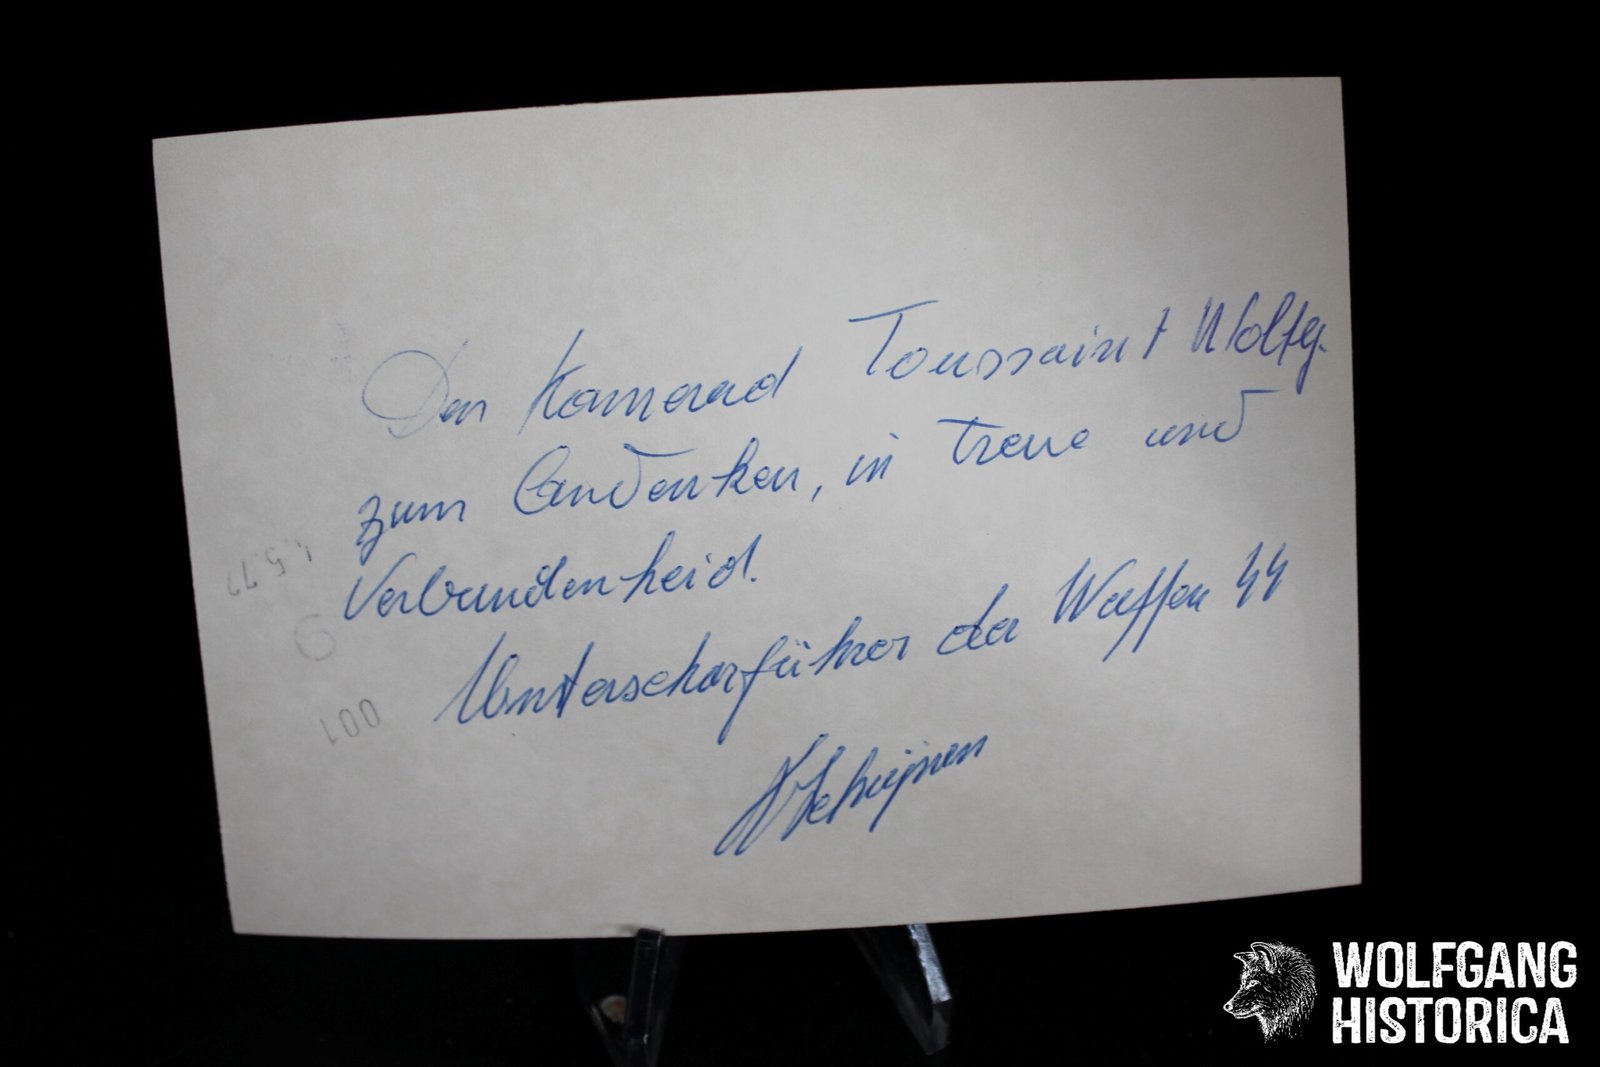 Den Kamerad Toussaint Wolfg.
zum Andenken, in treue und
Verbundenheid.
Unterscharführer der Waffen SS
1.577
001
WOLFGANG
HISTORICA